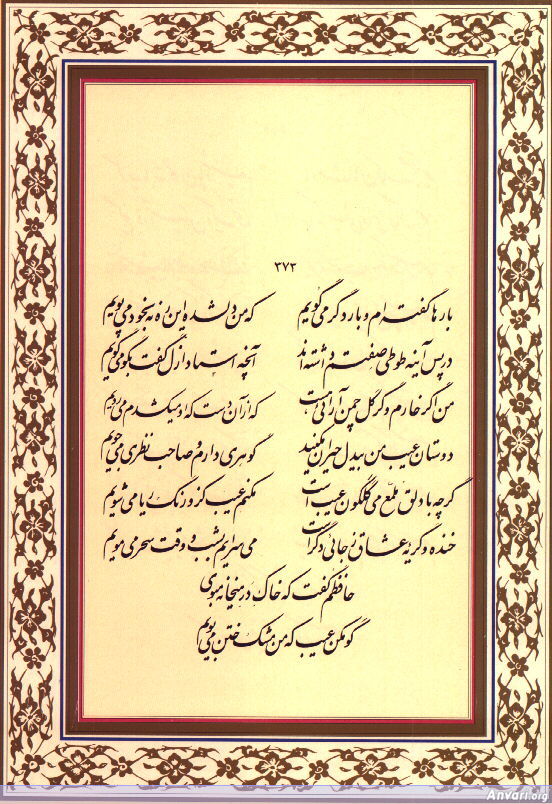 ۳۷۳
بارها گفته‌ام و بار دگر می‌گویم که من دلشده این ره نه بخود می‌پویم
در پس آینه طوطی صفتم داشته‌اند آنچه استاد ازل گفت بگو می‌گویم
من اگر خارم و گر گل چمن آرائی هست که از آن دست که او میکشدم می‌رویم
دوستان عیب من بیدل حیران مکنید گوهری دارم و صاحب نظری می‌جویم
گرچه با دلق ملمع می گلگون عیب است مکنم عیب کزو رنگ ریا می‌شویم
خنده و گریهٔ عشاق ز جائی دگر است می‌سرایم بشب و وقت سحر می‌مویم
حافظم گفت که خاک در میخانه مبوی
گو مکن عیب که من مشک ختن می‌بویم
Anvari.org